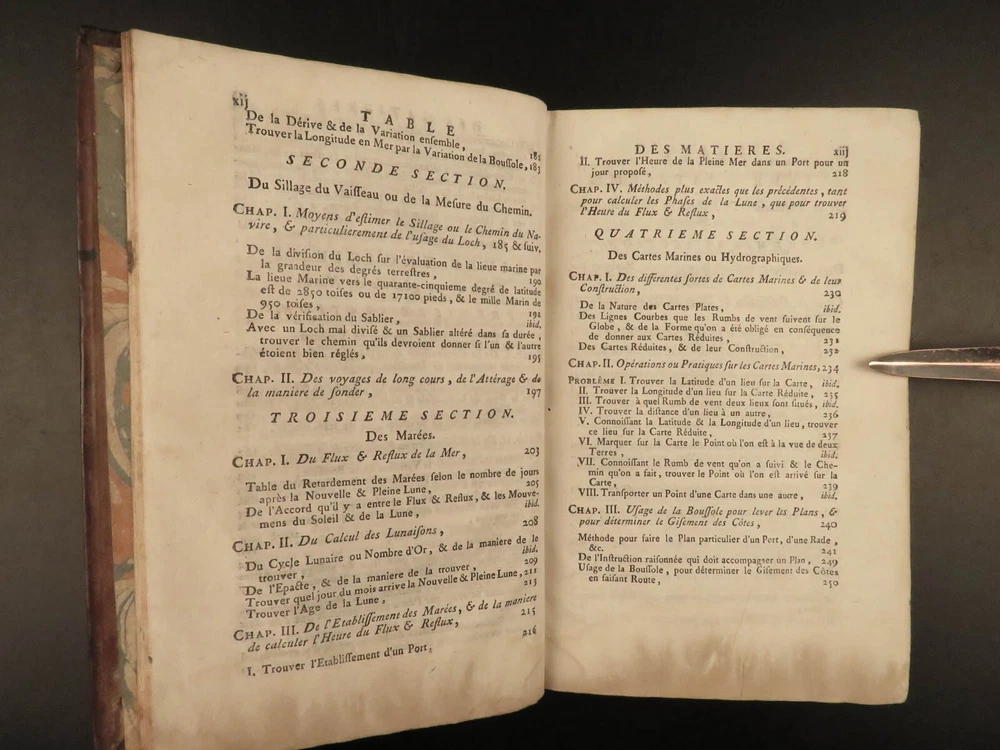 xij
TABLE
De la Dérive & de la Variation ensemble, 182
Trouver la Longitude en Mer par la Variation de la Boussole, 183
SECONDE SECTION.
Du Sillage du Vaisseau ou de la Mesure du Chemin.
CHAP. I. Moyens d'estimer le Sillage ou le Chemin du Na-
vire, & particulierement de l'usage du Loch, 185 & suiv.
De la division du Loch sur l'évaluation de la lieue marine par
la grandeur des degrés terrestres, 190
La lieue Marine vers le quarante-cinquieme degré de latitude
est de 2850 toises ou de 17100 pieds, & le mille Marin de
950 toises, 192
De la vérification du Sablier, ibid.
Avec un Loch mal divisé & un Sablier altéré dans sa durée,
trouver le chemin qu'ils devroient donner si l'un & l'autre
étoient bien réglés, 195
CHAP. II. Des voyages de long cours, de l'Attérage & de
la maniere de sonder, 197
TROISIEME SECTION.
Des Marées.
CHAP. I. Du Flux & Reflux de la Mer, 203
Table du Retardement des Marées selon le nombre de jours
après la Nouvelle & Pleine Lune, 205
De l'Accord qu'il y a entre le Flux & Reflux, & les Mouve-
mens du Soleil & de la Lune, ibid.
CHAP. II. Du Calcul des Lunaisons, 208
Du Cycle Lunaire ou Nombre d'Or, & de la maniere de le
trouver, ibid.
De l'Epacte, & de la maniere de la trouver, 209
Trouver quel jour du mois arrive la Nouvelle & Pleine Lune, 211
Trouver l'Age de la Lune, 213
CHAP. III. De l'Etablissement des Marées, & de la maniere
de calculer l'Heure du Flux & Reflux, 215
I. Trouver l'Etablissement d'un Port, 216
DES MATIERES. xiij
II. Trouver l'Heure de la Pleine Mer dans un Port pour un
jour proposé, 218
CHAP. IV. Méthodes plus exactes que les précédentes, tant
pour calculer les Phases de la Lune, que pour trouver
l'Heure du Flux & Reflux, 219
QUATRIEME SECTION.
Des Cartes Marines ou Hydrographiques.
CHAP. I. Des différentes sortes de Cartes Marines & de leur
Construction, 230
De la Nature des Cartes Plates, ibid.
Des Lignes Courbes que les Rumbs de vent suivent sur le
Globe, & de la Forme qu'on a été obligé en conséquence
de donner aux Cartes Réduites, 231
Des Cartes Réduites, & de leur Construction, 232
CHAP. II. Opérations ou Pratiques sur les Cartes Marines, 234
PROBLÊME I. Trouver la Latitude d'un lieu sur la Carte, ibid.
II. Trouver la Longitude d'un lieu sur la Carte Réduite, 235
III. Trouver à quel Rumb de vent deux lieux sont situés, ibid.
IV. Trouver la distance d'un lieu à un autre, 236
V. Connoissant la Latitude & la Longitude d'un lieu, trouver
ce lieu sur la Carte Réduite, 237
VI. Marquer sur la Carte le Point où l'on est à la vue de deux
Terres, ibid.
VII. Connoissant le Rumb de vent qu'on a suivi & le Che-
min qu'on a fait, trouver le Point où l'on est arrivé sur la
Carte, 239
VIII. Transporter un Point d'une Carte dans une autre, ibid.
CHAP. III. Usage de la Boussole pour lever les Plans, &
pour déterminer le Gisement des Côtes, 240
Méthode pour faire le Plan particulier d'un Port, d'une Rade,
&c. 241
De l'Instruction raisonnée qui doit accompagner un Plan, 249
Usage de la Boussole, pour déterminer le Gisement des Côtes
en faisant Route, 250